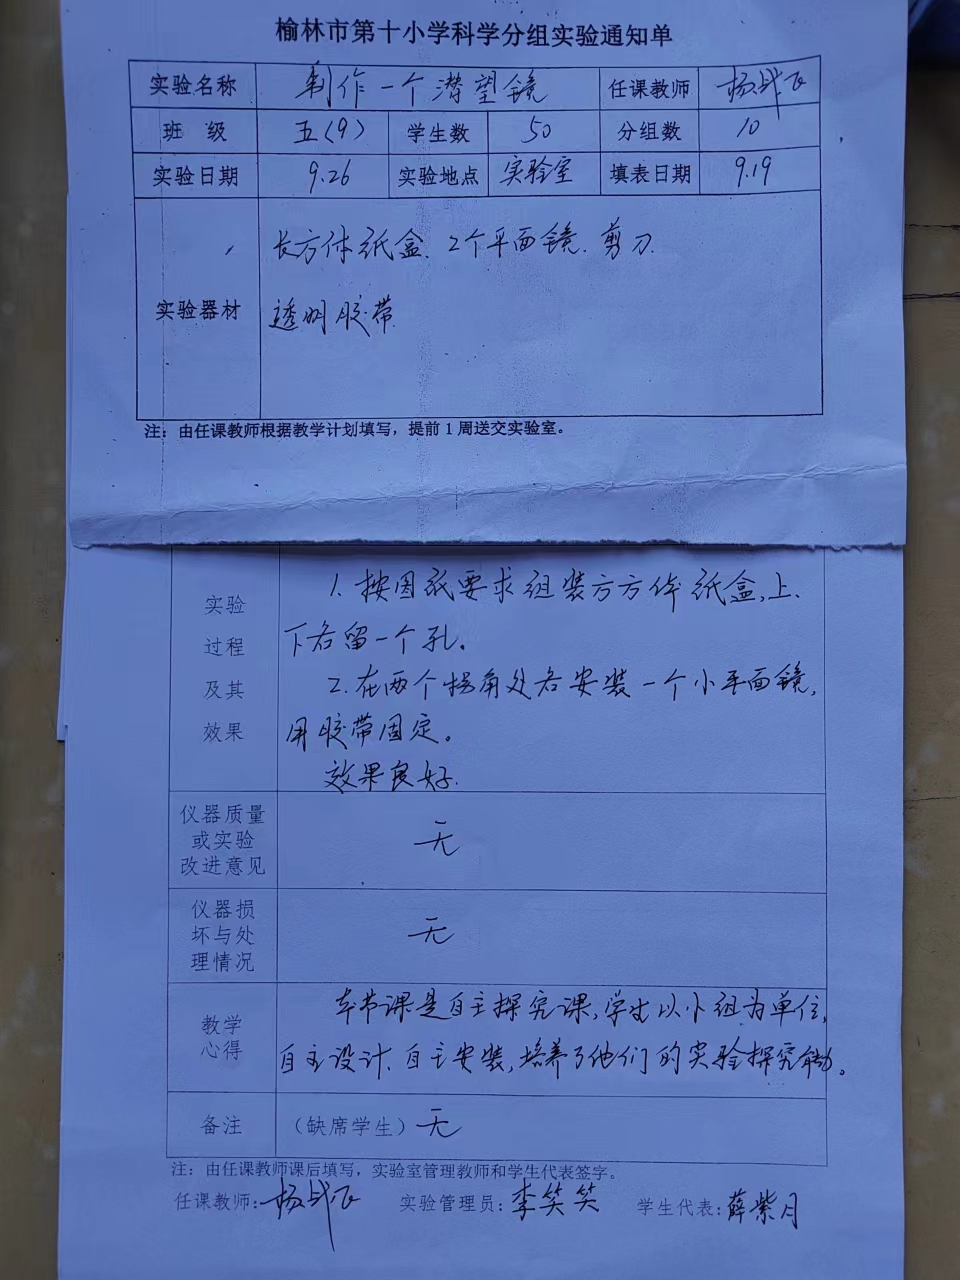 榆林市第十小学科学分组实验通知单
实验名称 制作一个潜望镜 任课教师 杨战飞
班 级 五(9) 学生数 50 分组数 10
实验日期 9.26 实验地点 实验室 填表日期 9.19
长方体纸盒、2个平面镜、剪刀、
实验器材 透明胶带
注:由任课教师根据教学计划填写,提前1周送交实验室。
1.按图纸要求组装方方体纸盒,上、
实验
过程 下各留一个孔。
及其 2.在两个拐角处各安装一个小平面镜,
效果 用胶带固定。
效果良好.
仪器质量
或实验 无
改进意见
仪器损
坏与处 无
理情况
本节课是自主探究课,学生以小组为单位,
教学
心得 自主设计、自主安装,培养了他们的实验探究能力。
备注 (缺席学生)无
注:由任课教师课后填写,实验室管理教师和学生代表签字。
任课教师:杨战飞 实验管理员:李笑笑 学生代表:薛紫月